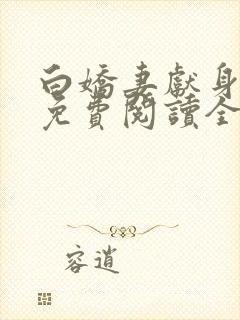 白嬌妻獻身
免費閱讀全
容逍